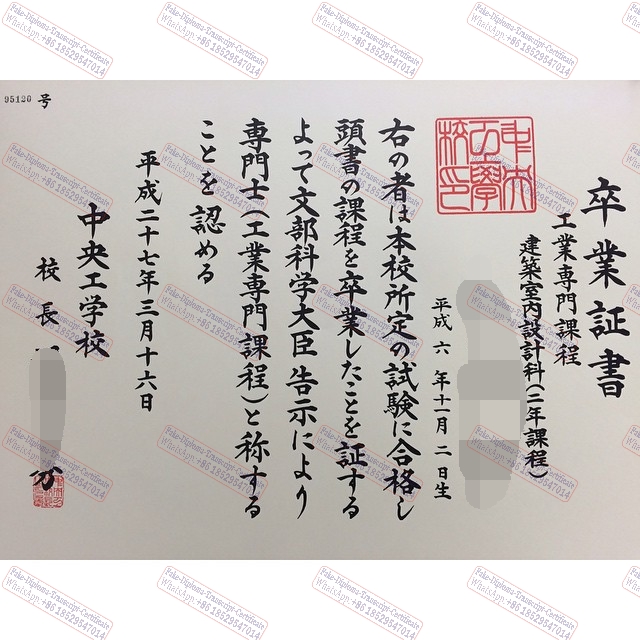 卒業証書
工業専門課程
建築室内設計科(二年課程)
平成 六 年十一月 二日生
中央
工學
校印
右の者は本校所定の試験に合格し
頭書の課程を卒業したことを証する
よって文部科学大臣告示により
専門士(工業専門課程)と称する
ことを認める
平成二十七年三月十六日
中央工学校
校長
95120 号
Fake-Diploma-Transcript-Certificate
WhatsApp:+86 18529547014